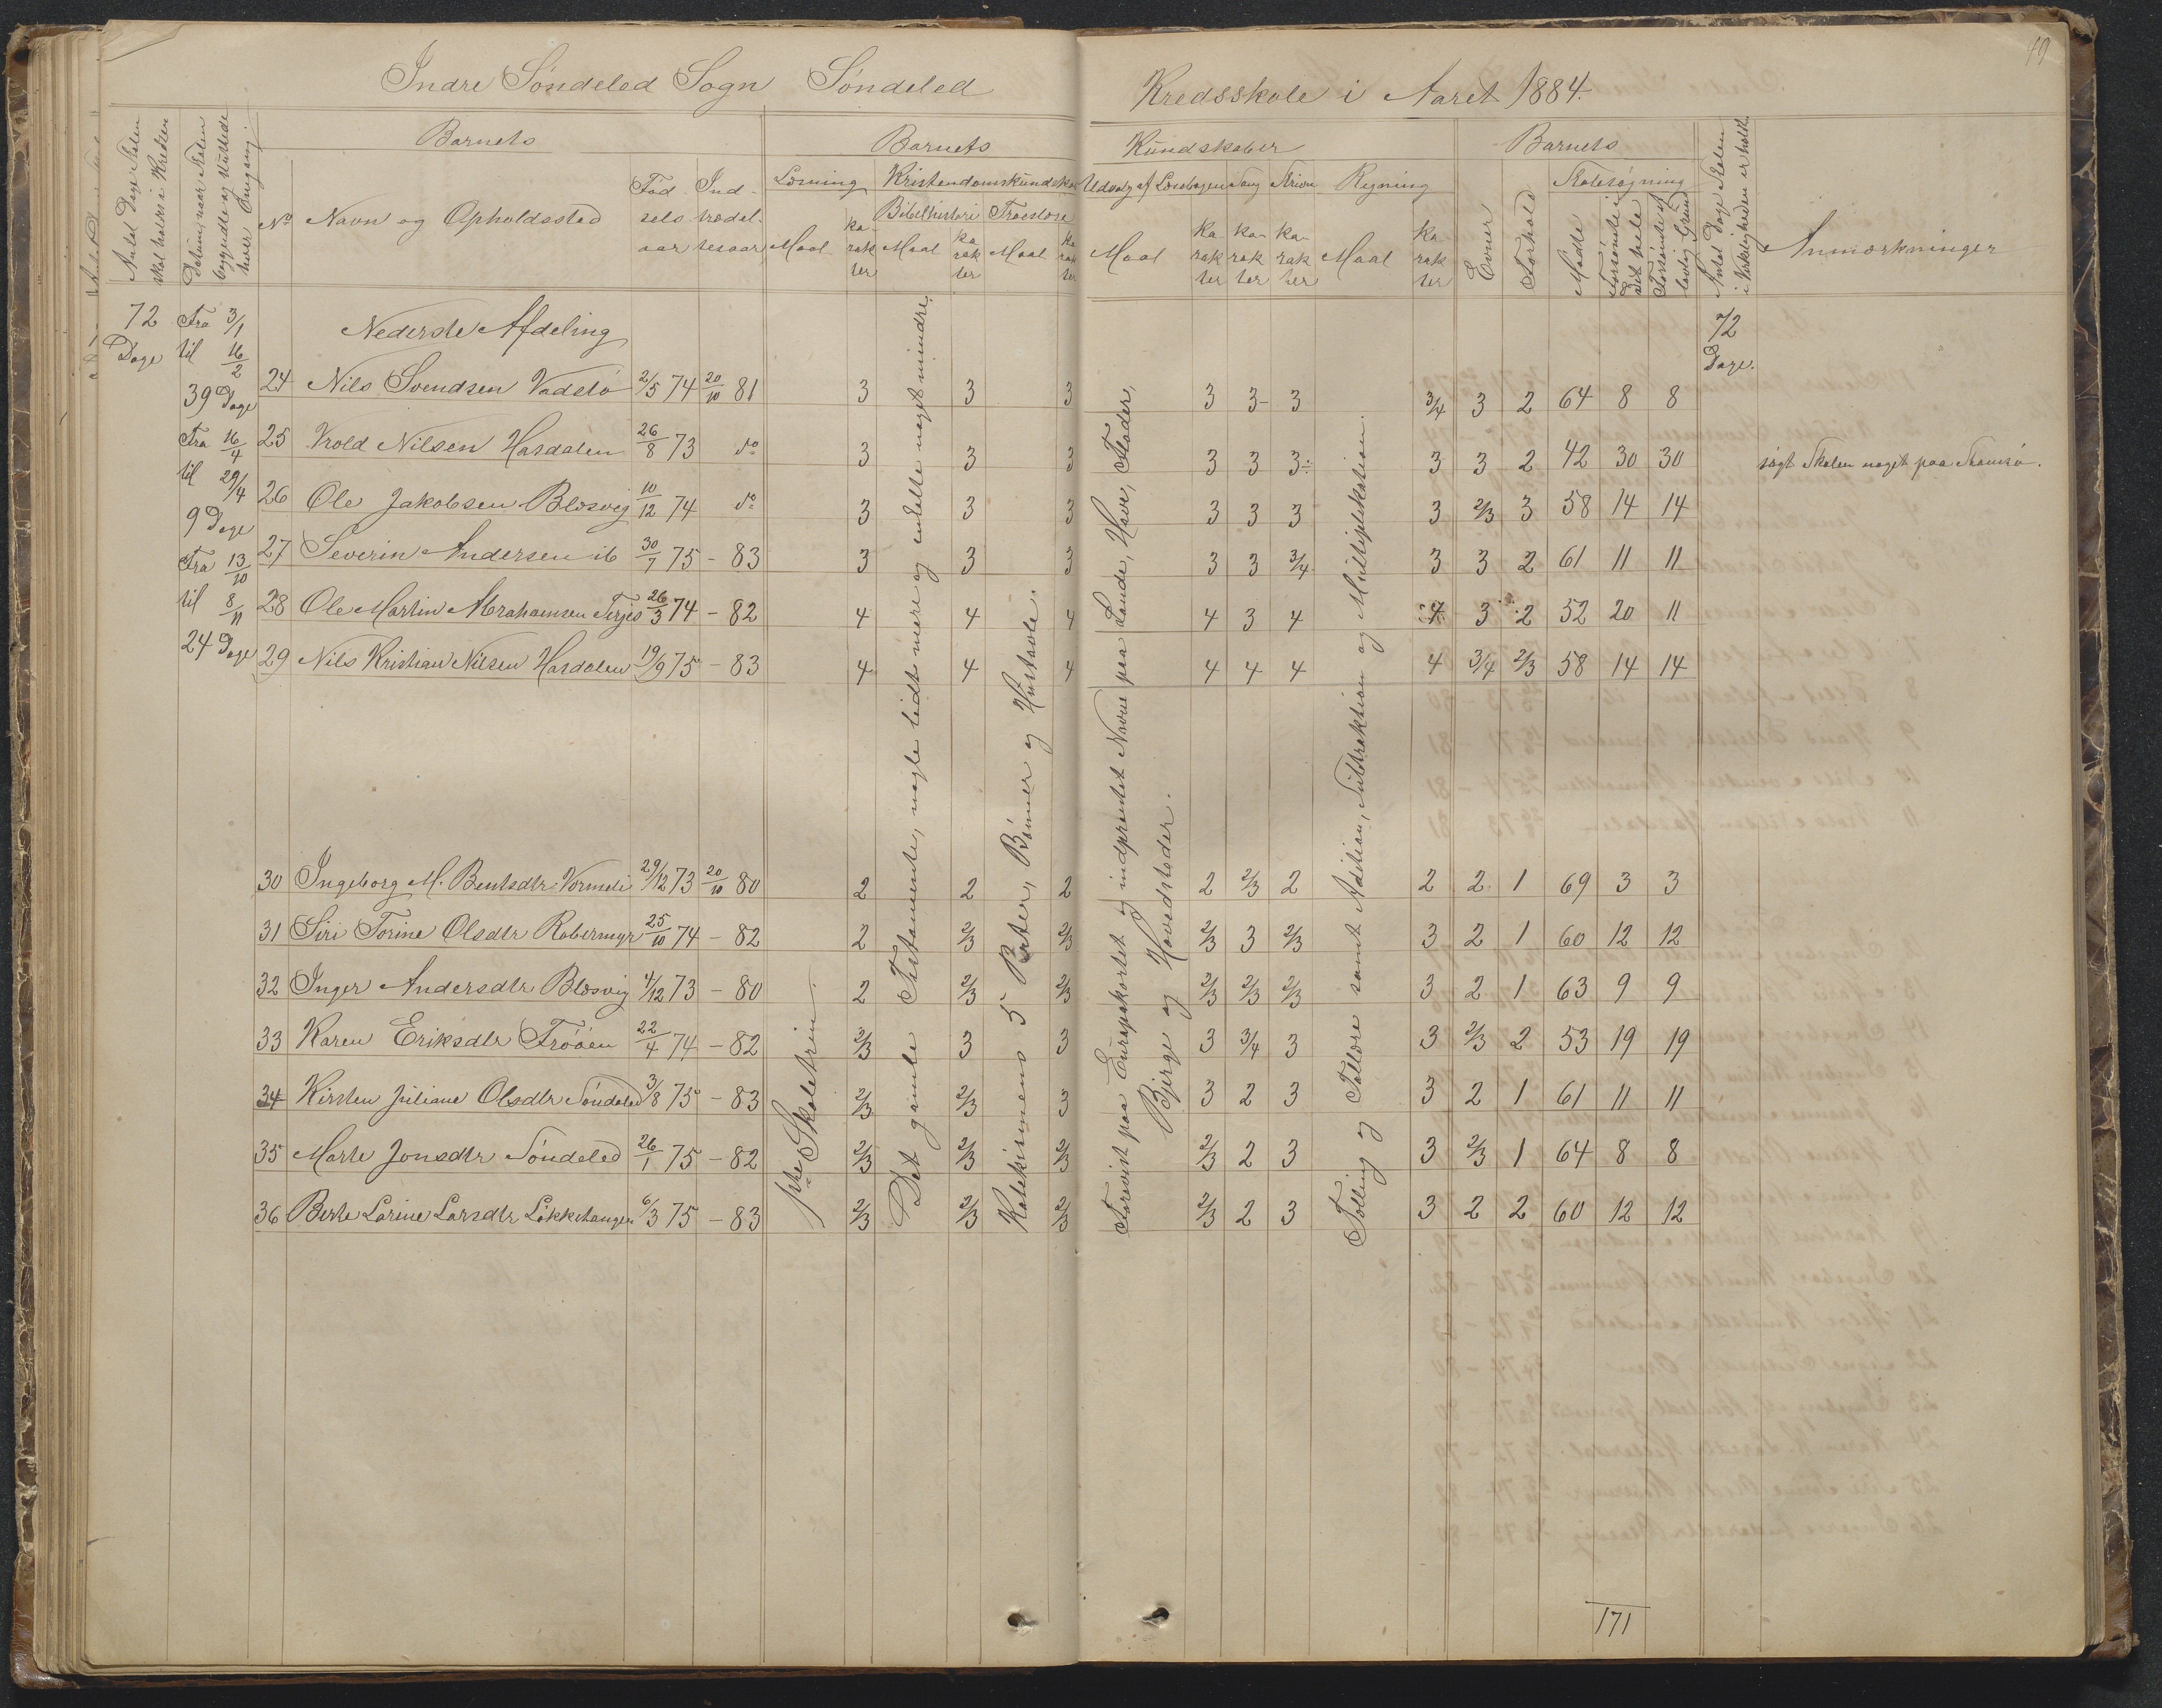 Indre Söndeled Sogn Söndeled Kredsskole i Aaret 1884.
49
Antal Dage Skolen skal holdes i Kredsen
Datum, naar Skolen begyndte og sluttede hver Omgang
Barnets
Barnets Kundskaber
Barnets
No
Navn og Opholdssted
Fødselsaar
Indtrædelsesaar
Læsning
Kristendomskundskab
Bibelhistorie
Troeslære
Udvalg af Læsebogen
Sang
Skrivn
Regning
Maal
Karakter
Maal
Karakter
Maal
Karakter
Maal
Karakter
Karakter
Karakter
Maal
Karakter
Evner
Forhold
Skolesøgning
Mødte
Forsømte i det hele
Forsømte af lovlig Grund
Antal Dage Skolen i Virkeligheden er holdt
Anmærkninger
72 Dage
Fra 3/1
til 16/2
39 Dage
Fra 16/4
til 29/4
9 Dage
Fra 13/10
til 8/11
24 Dage
72 Dage.
Nederste Afdeling
24 Nils Svendsen Vadstø 2/5 74 20/10 81 3 3 3 3 3- 3 3/4 3 2 64 8 8
25 Krold Nilsen Hasdalen 26/8 73 do 3 3 3 3 3 3÷ 3 3 2 42 30 30 søgt Skolen noget paa
26 Ole Jakobsen Blæsvig 10/12 74 do 3 3 3 3 3 3 3 2/3 3 58 14 14
27 Severin Andersen ib 30/7 75 - 83 3 3 3 3 3 3/4 3 3 2 61 11 11
28 Ole Martin Abrahamsen Terjes 26/3 74 - 82 4 4 4 4 3 4 4 3 2 52 20 11
29 Nils Kristian Nilsen Hasdalen 19/9 75 - 83 4 4 4 4 4 4 4 3/4 2/3 58 14 14
30 Ingeborg M. Bentsdtr Vormeli 29/12 73 20/10 80 2 2 2 2 2/3 2 2 2 1 69 3 3
31 Siri Torine Olsdtr Røbermyr 25/10 74 - 82 2 2/3 2/3 2/3 3 2/3 3 2 1 60 12 12
32 Inger Andersdtr Blæsvig 4/12 73 - 80 2 2/3 2/3 2/3 2/3 2/3 3 2 1 63 9 9
33 Karen Eriksdtr Trøåen 22/4 74 - 82 2/3 3 3 3 3/4 3 3 2/3 2 53 19 19
34 Kirsten Juliane Olsdtr Søndeled 3/8 75 - 83 2/3 2/3 3 3 2 3 3 2 1 61 11 11
35 Marte Jonsdtr Søndeled 26/1 75 - 82 2/3 2/3 2/3 2/3 2 3 3 2/3 1 64 8 8
36 Berte Larine Larsdtr Løkketangen 6/3 75 - 83 2/3 2/3 2/3 2/3 2 3 3 2 2 60 12 12
1ste Skoletrin.
Det gamle Testamente, nogle lidt mere og enkelte noget mindre.
Katekismens 5 Parter, Bønner og Hustavle.
Forevist paa Europakortet og indprentet Navne paa Lande, Have, Floder,
Bjerge og Hovedstæder.
Tælling og Tallære samt Adition, Subtraktion og Multiplikation.
171